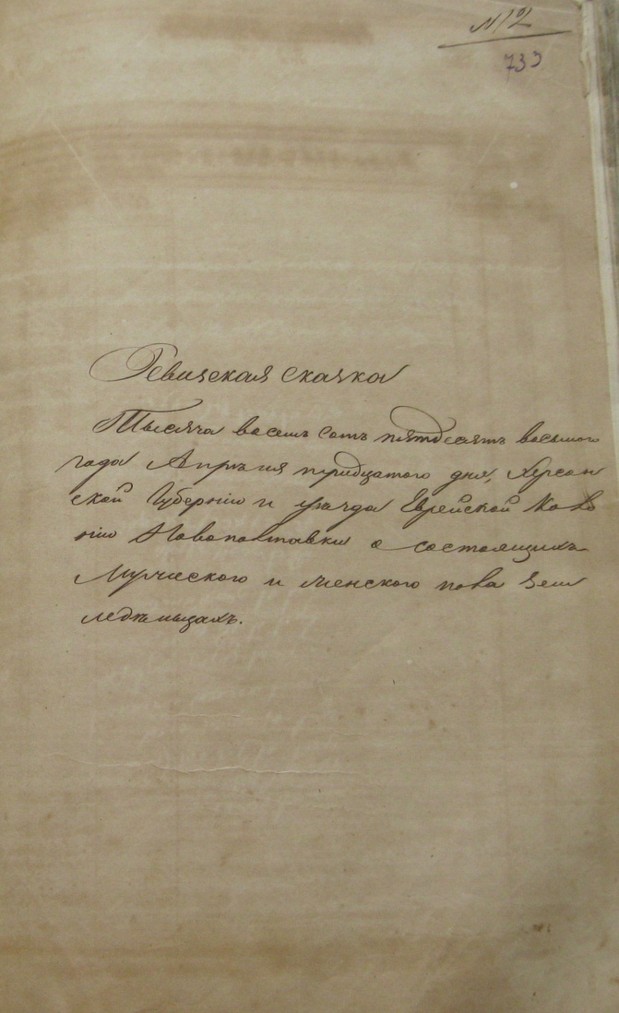 № 12
733
Ревизская сказка
Тысяча восемь сотъ пятдесятъ восьмого
года Апрѣля тридцатого дня, Херсон
ской Губерніи и уѣзда Еврейской Коло
ніи Новополтавки о состоящихъ
Мужеского и женского пола Земле
ледѣльцахъ.